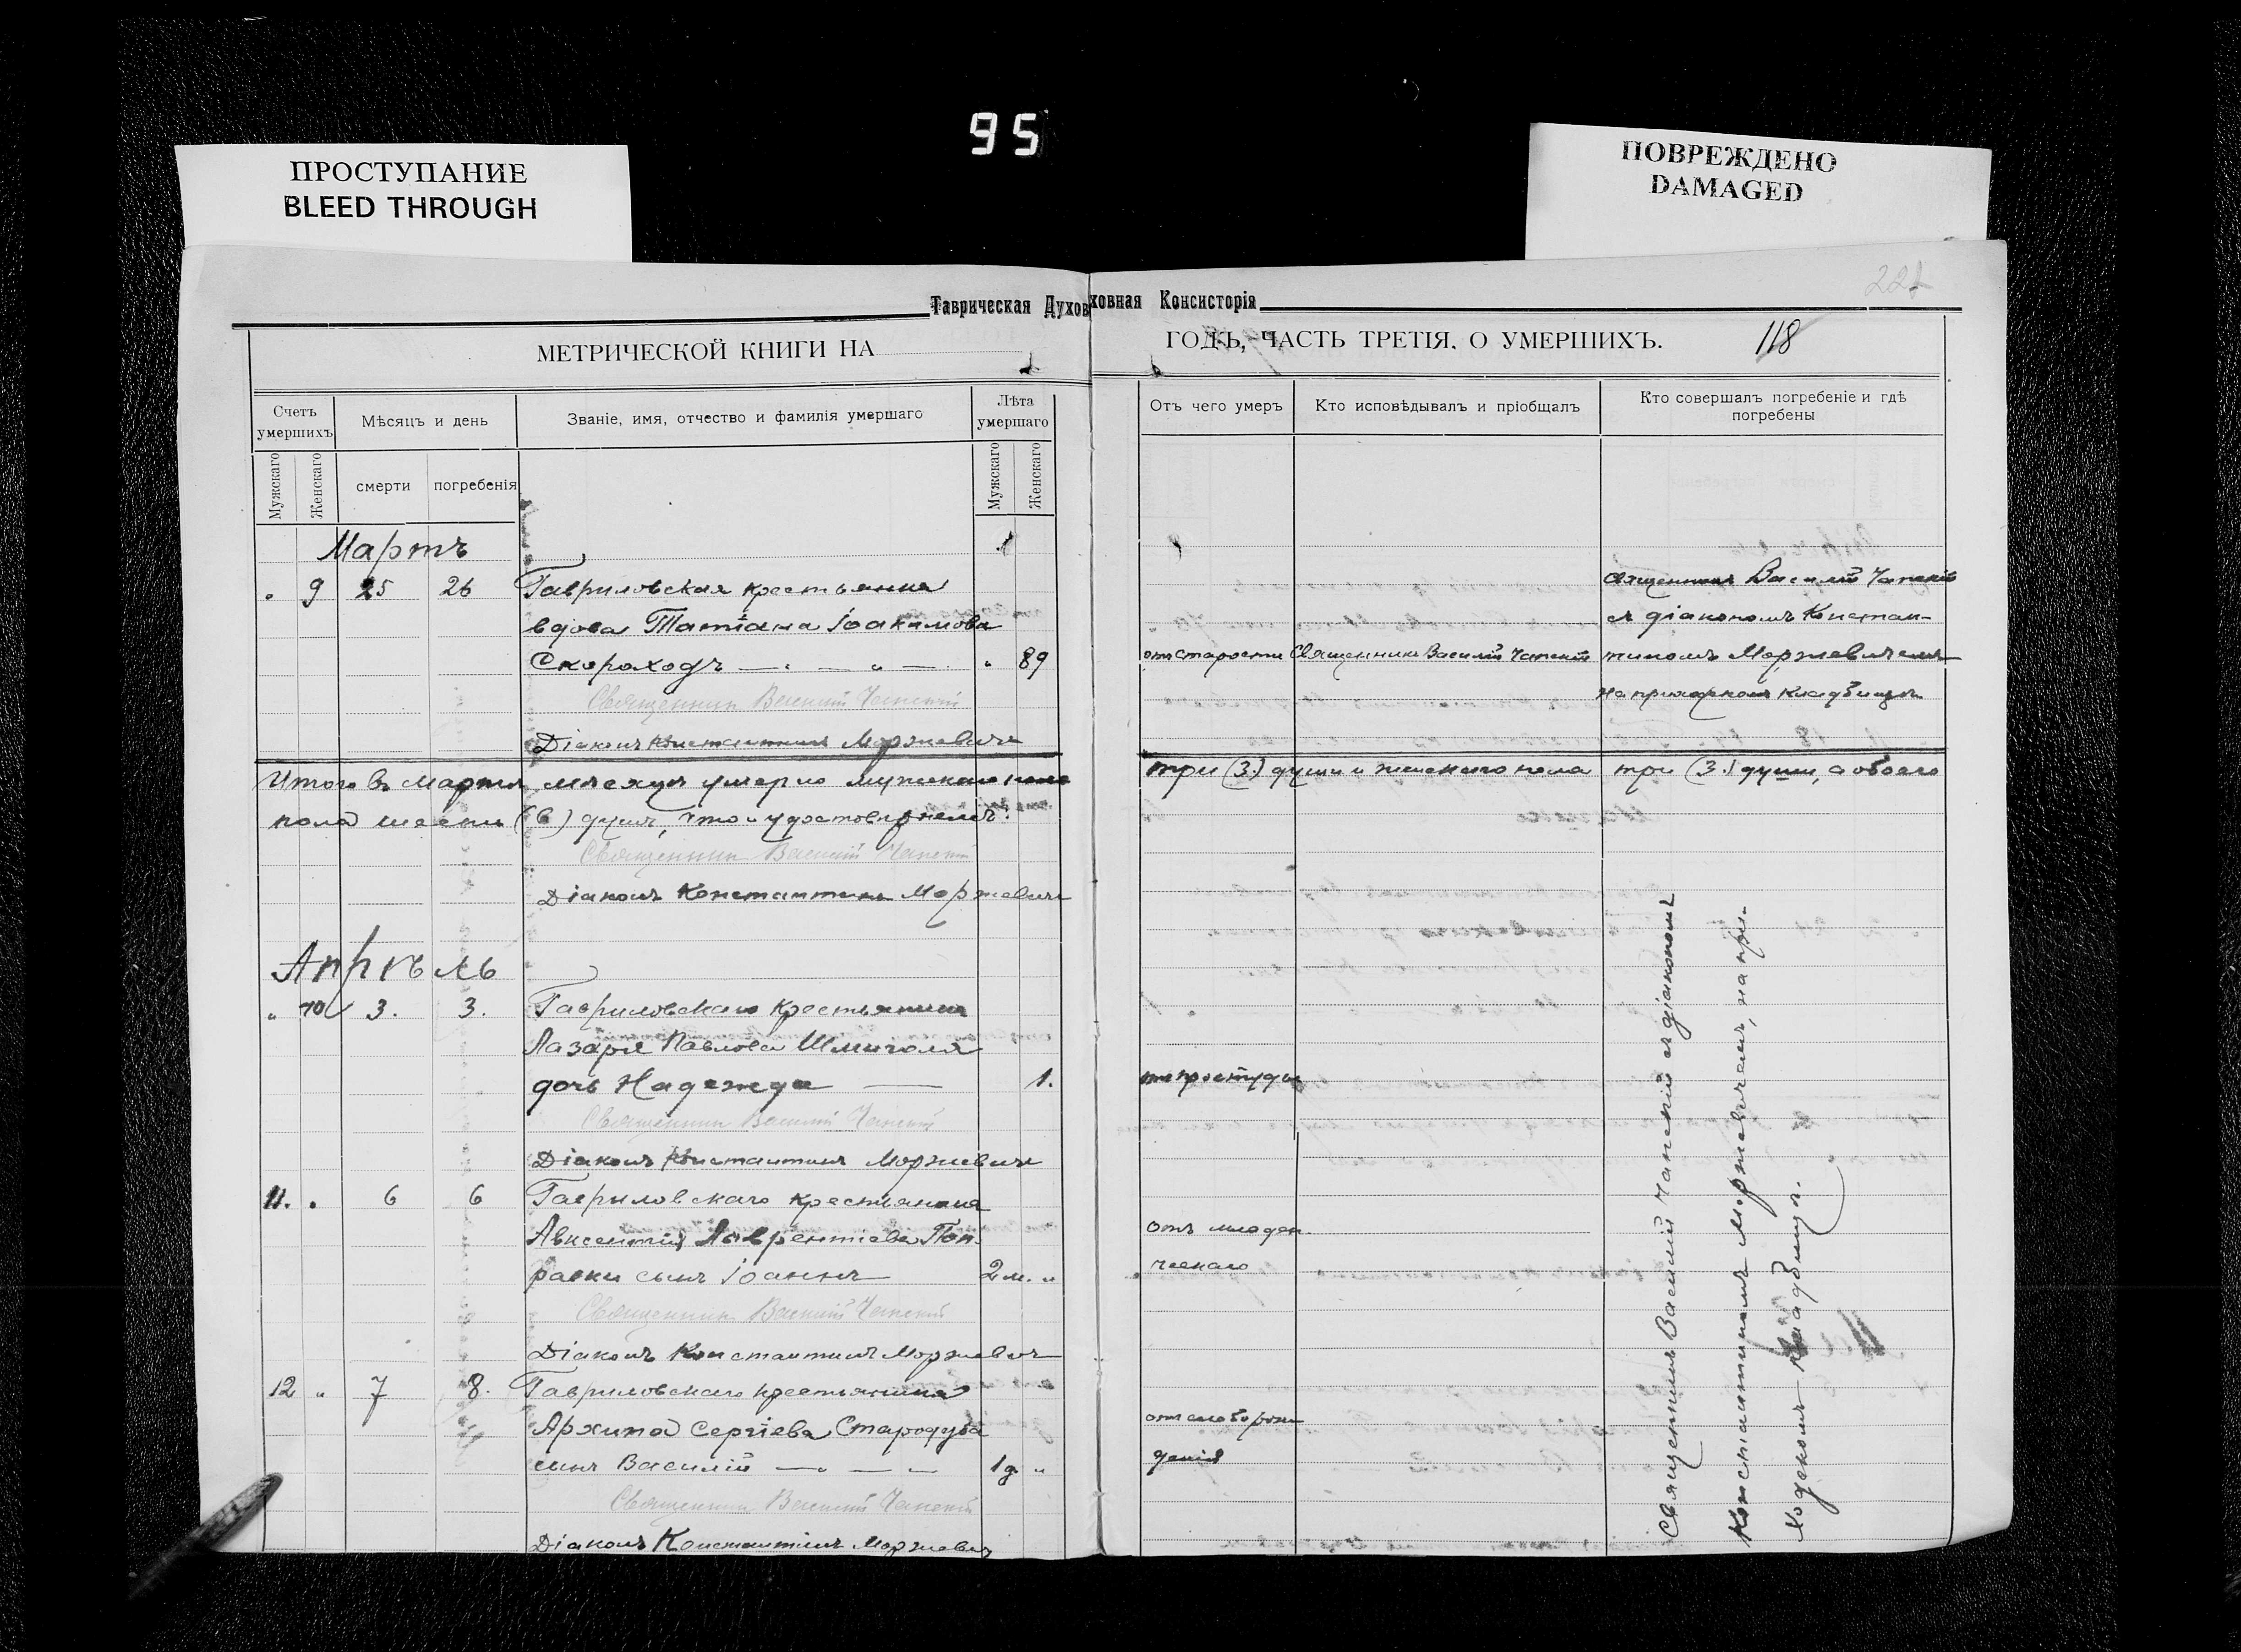 95
ПРОСТУПАНИЕ
BLEED THROUGH
ПОВРЕЖДЕНО
DAMAGED
Таврическая Духовная Консисторія
МЕТРИЧЕСКОЙ КНИГИ НА
ГОДЪ, ЧАСТЬ ТРЕТІЯ, О УМЕРШИХЪ.
118
Счетъ умершихъ
Мѣсяцъ и день
Званіе, имя, отчество и фамилія умершаго
Лѣта умершаго
Отъ чего умеръ
Кто исповѣдывалъ и пріобщалъ
Кто совершалъ погребеніе и гдѣ погребены
Мужскаго
Женскаго
смерти
погребенія
Мужскаго
Женскаго
Мартъ
9 25 26 Гавриловская крестьянка
вдова Татіана Іоакимова
Скороходъ 89
отъ старости
Священникъ Василій Чапскій
Священникъ Василій Чапскій
съ діакономъ Констан-
тиномъ Моржевичемъ
на приходскомъ кладбищѣ
Священник Василий Чапскій
Діаконъ Константинъ Моржевичъ
Итого въ Мартѣ мѣсяцѣ умерло мужскаго пола три (3.) души и женскаго пола три (3.) души, а обоего
пола шесть (6) душъ, что и удостовѣряемъ:
Священник Василий Чапскій
Діаконъ Константинъ Моржевичъ
Апрѣль
10 3. 3. Гавриловскаго крестьянина
Лазаря Павлова Шмиголя
дочь Надежда 1.
отъ простуды
Священник Василий Чапскій
Діаконъ Константинъ Моржевичъ
11. 6 6 Гавриловскаго крестьянина
Авксентія Лаврентіева Поп-
равки сынъ Іоаннъ 2 м.
отъ младен
ческаго
Священник Василий Чапскій
Діаконъ Константинъ Моржевичъ
12 7 8. Гавриловскаго крестьянина
Архипа Сергіева Стародуба
сынъ Василій 1 д.
отъ слаборож
денія
Священник Василий Чапскій
Діаконъ Константинъ Моржевич
Священникъ Василій Чапскій съ діакономъ
Константиномъ Моржевичемъ, на при-
ходскомъ кладбищѣ.